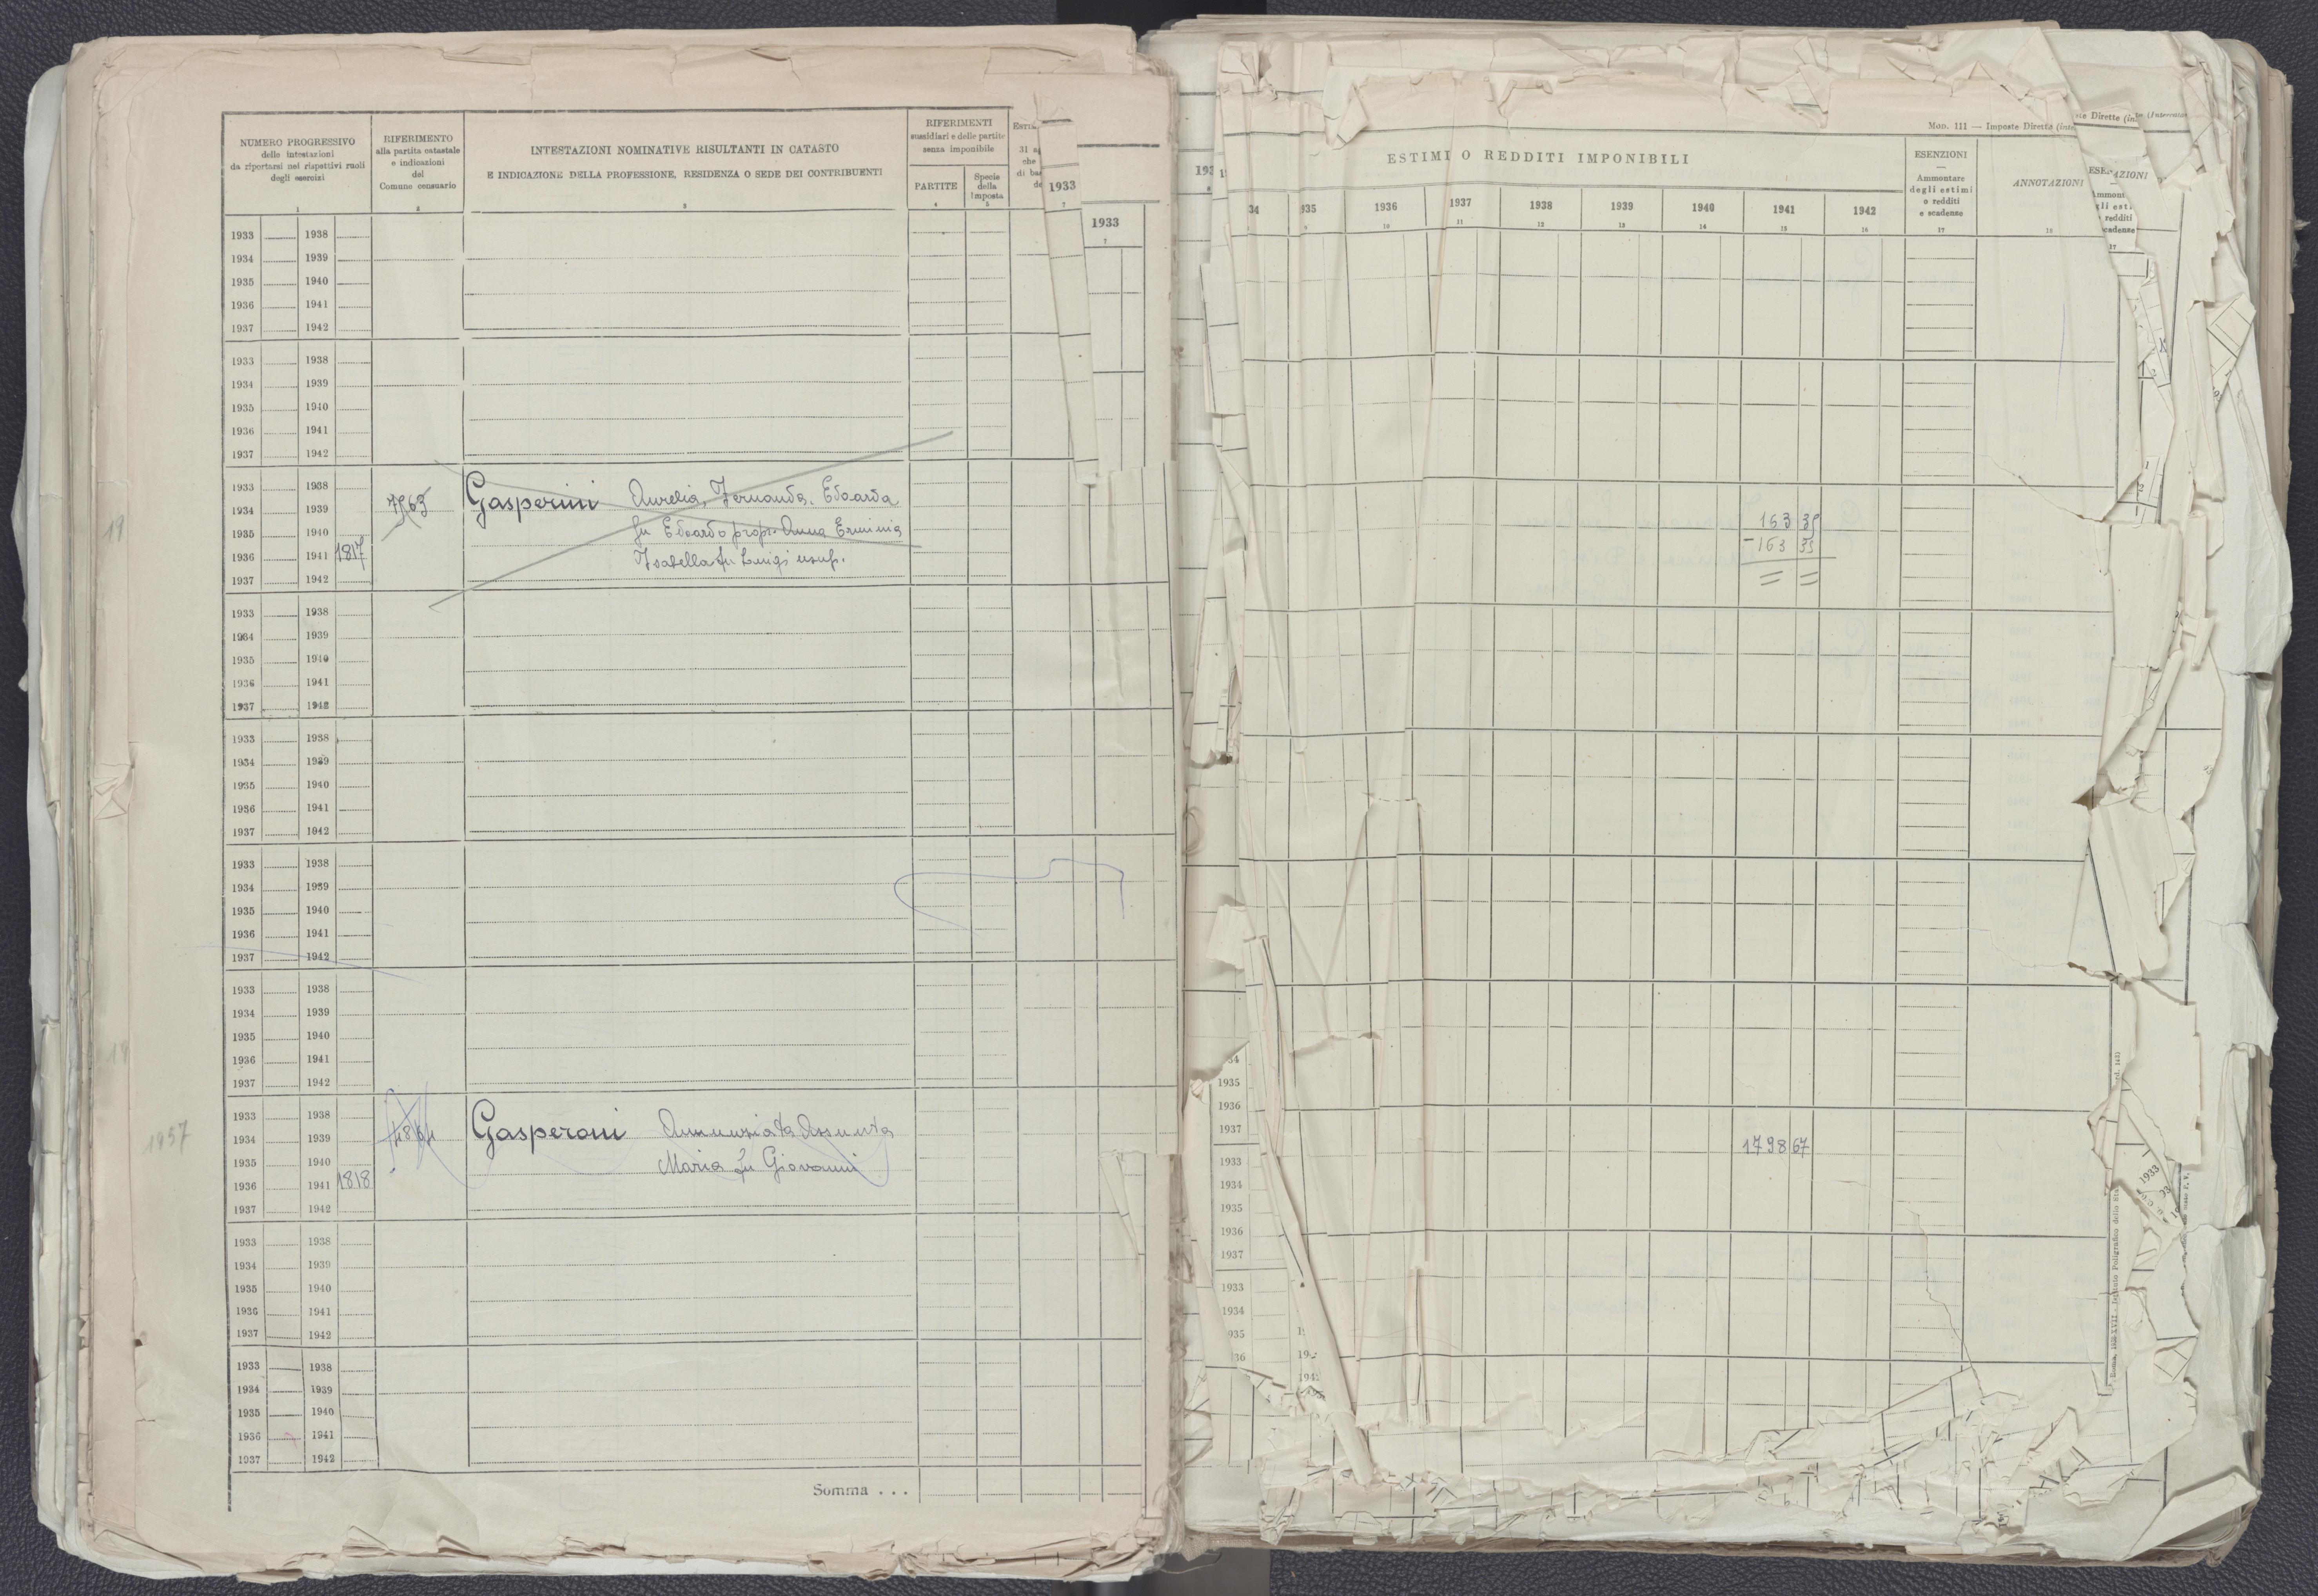 NUMERO PROGRESSIVO
delle intestazioni
da riportarsi nei rispettivi ruoli
degli esercizi
1
RIFERIMENTO
alla partita catastale
e indicazioni
del
Comune censuario
2
INTESTAZIONI NOMINATIVE RISULTANTI IN CATASTO
E INDICAZIONE DELLA PROFESSIONE, RESIDENZA O SEDE DEI CONTRIBUENTI
3
RIFERIMENTI
sussidiari e delle partite
senza imponibile
PARTITE
4
Specie
della
Imposta
5
1933
7
1933
7
1933 1938
1934 1939
1935 1940
1936 1941
1937 1942
1933 1938
1934 1939
1935 1940
1936 1941
1937 1942
1933 1938
Gasperini Aurelia, Fernanda, Edoarda
1934 1939
1935 1940
fu Edoardo propr. Anna Erminia
1936 1941 1817
Isabella fu Luigi usuf.
1937 1942
1933 1938
1934 1939
1935 1940
1936 1941
1937 1942
1933 1938
1934 1939
1935 1940
1936 1941
1937 1942
1933 1938
1934 1939
1935 1940
1936 1941
1937 1942
1933 1938
1934 1939
1935 1940
1936 1941
1937 1942
1933 1938
Gasperoni Annunziata Assunta
1934 1939
1935 1940
Maria fu Giovanni
1936 1941 1818
1937 1942
1933 1938
1934 1939
1935 1940
1936 1941
1937 1942
1933 1938
1934 1939
1935 1940
1936 1941
1937 1942
Somma . . .
19
19
1957
Mod. 111 — Imposte Dirette
ESTIMI O REDDITI IMPONIBILI
34
935
1936
10
1937
11
1938
12
1939
13
1940
14
1941
15
1942
16
ESENZIONI
Ammontare
degli estimi
o redditi
e scadenze
17
ANNOTAZIONI
18
163 35
-163 35
= =
1798 67
1935
1936
1937
1933
1934
1935
1936
1937
1933
1934
935
36
1933